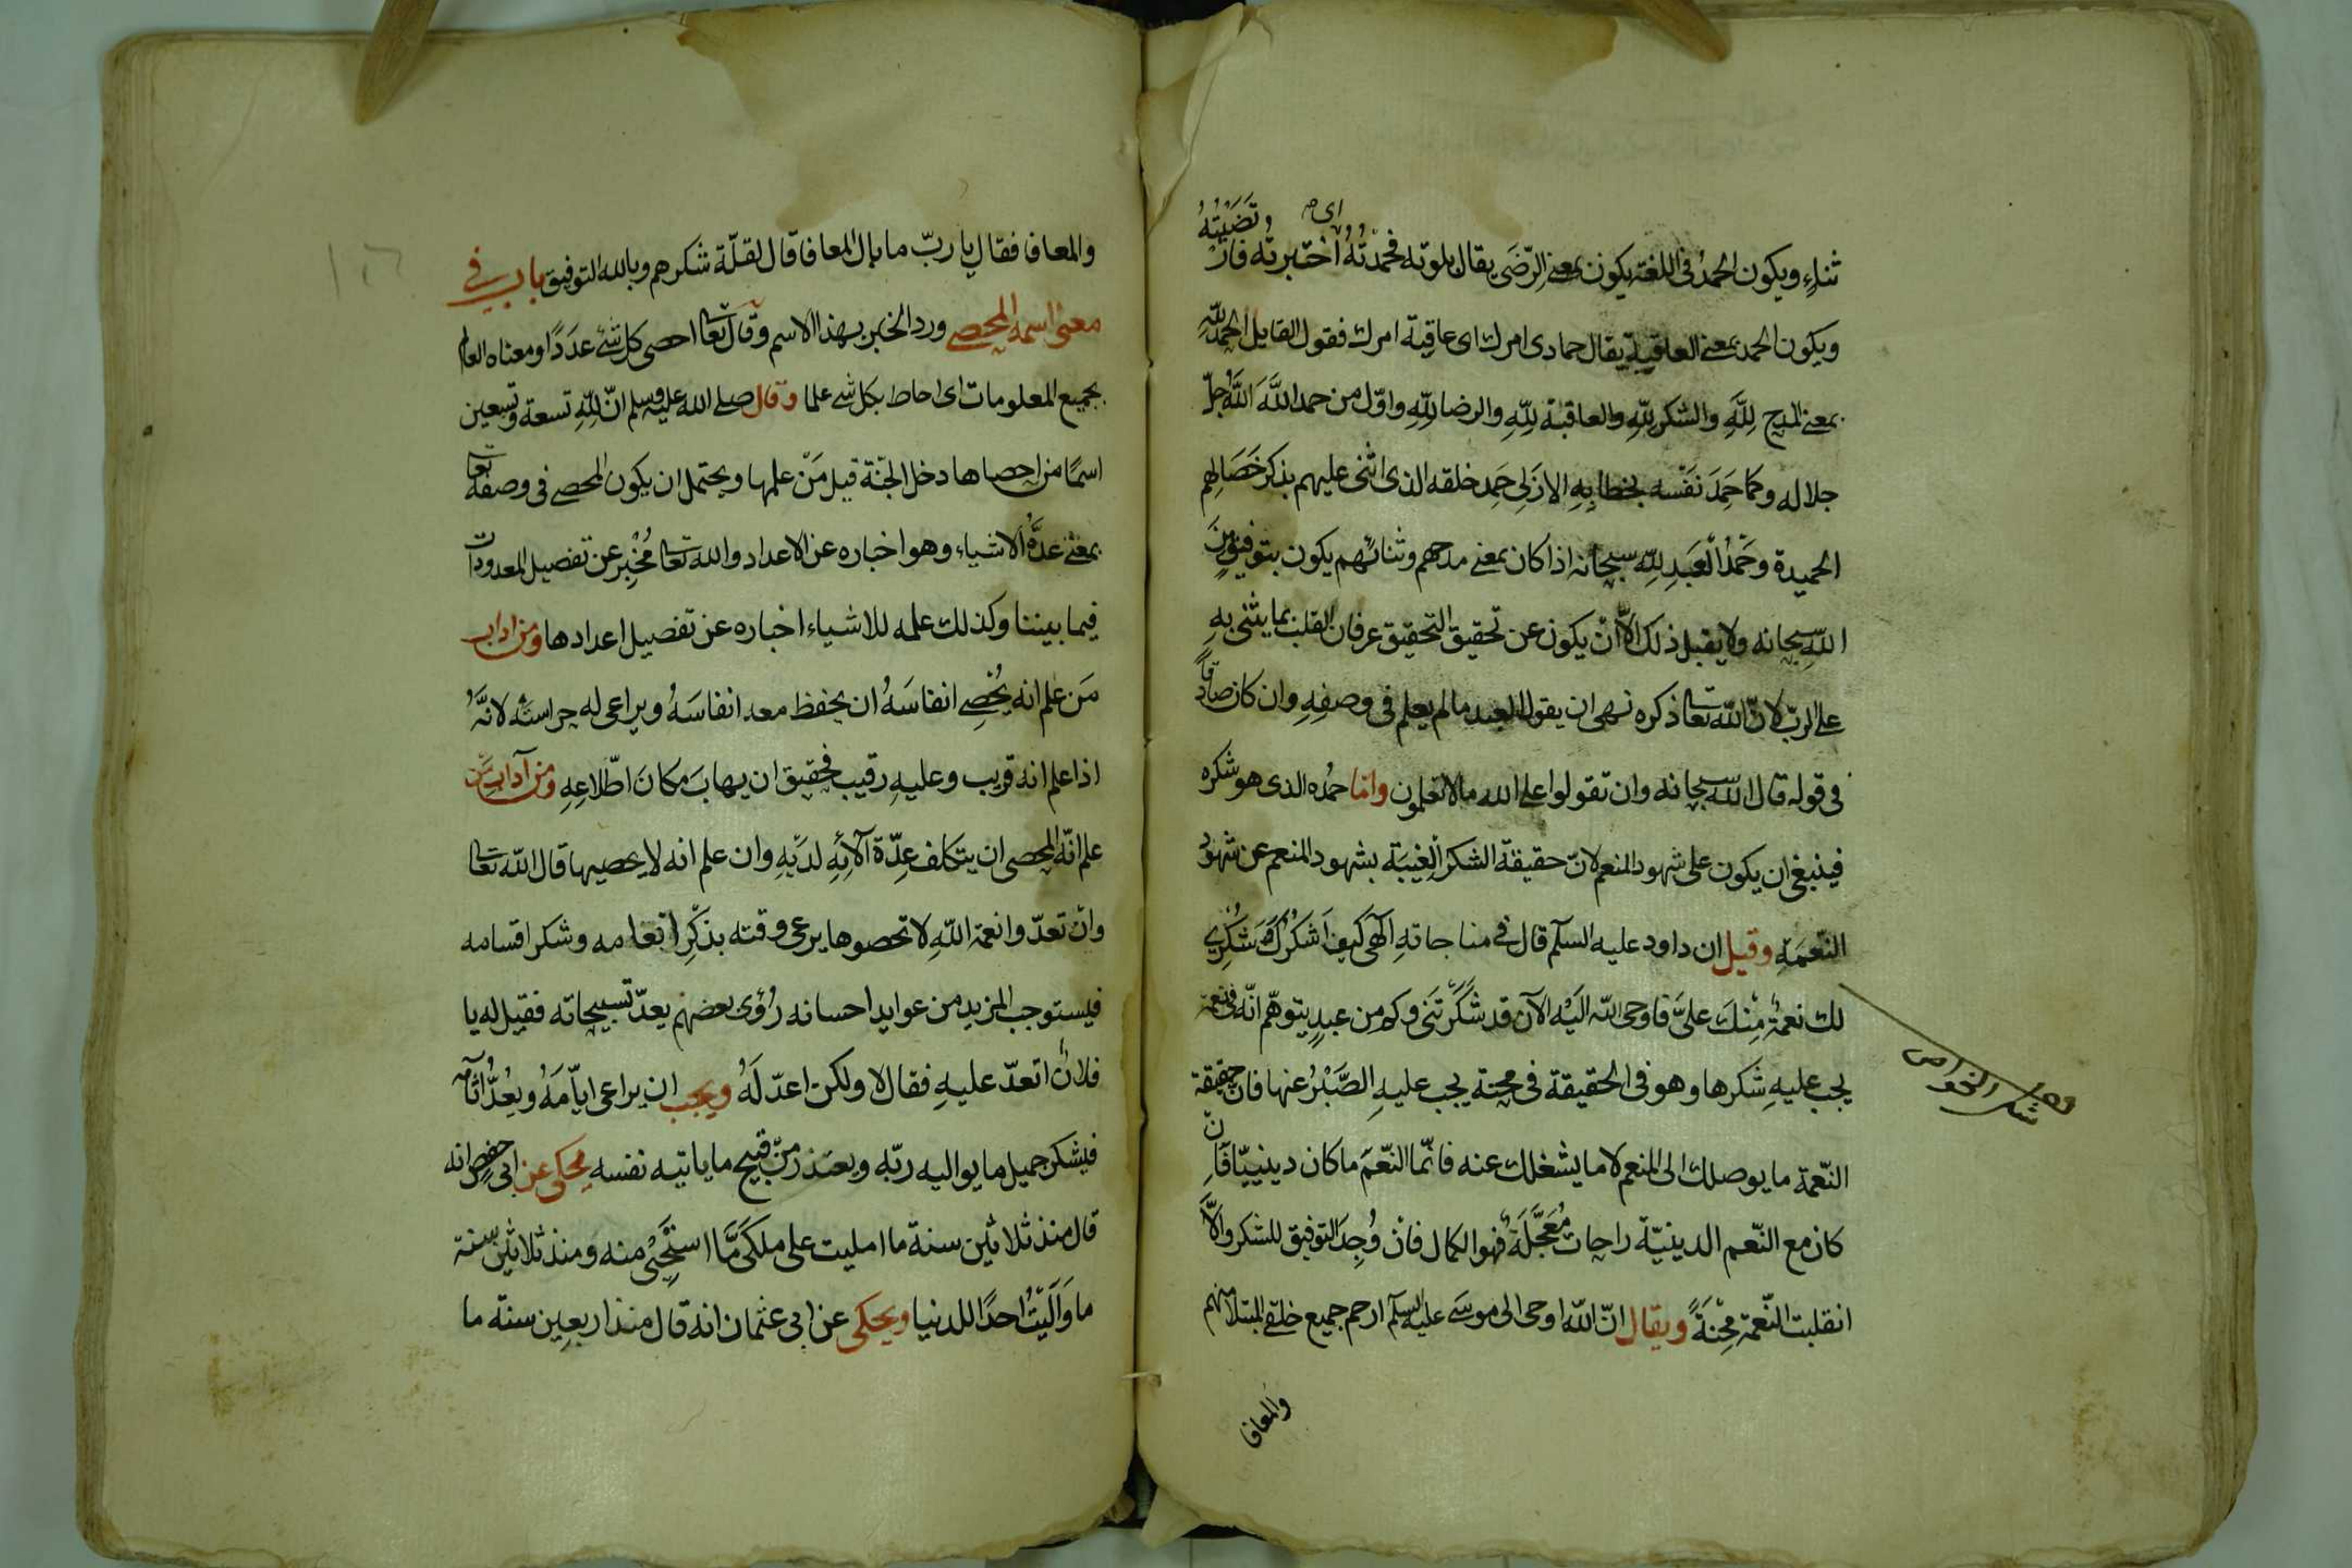 ثناءٍ ويكون الحمدُ فى اللغة يكون بمعنى الرِّضَى يقال بلوته فحمدتُهُ اى اختبرته فارْتَضَيْتُهُ
ويكون الحمد بمعنى العاقبةِ يقال حمادى امرك اى عاقبة امرك فقول القايل الحمد لله
بمعنى المدح لِلَّهِ والشكر لِلّهِ والعاقبة لِلّهِ والرضا لِلّهِ واوّل من حمد اللهَ اللهُ جلّ
جلاله وكما حَمِدَ نَفْسه بخطابِهِ الازَلى حَمِد خلقه الذى اثنى عليهم بذكر خَصَالِهم
الحميدة وحَمْدُ العَبَدِ لِلّهِ سبحانه اذا كان بمعنى مدحهم وثنائهم يكون بتوفيقٍ مِنَ
اللّه سبحانه ولا يقبل ذلك الاّ انْ يكون عن تحقيق التحقيق عرفان القلب بما يثنى بهِ
على الربّ لانّ اللّه تعالى ذكره نهى ان يقول العبد ما لم يعلم فى وصفِهِ وان كان صادقاً
فى قوله قال اللّه سبحانه وان تقولوا على الله ما لا تعلمون وامّا حمدُه الذى هو شكره
فينبغى ان يكون على شهود المنعم لانّ حقيقة الشكر الْغِيْبَة بشهود المنعم عن شهود
النّعمَةِ وقيل ان داود عليه السلم قال فى مناجاتهِ الهى كَيفَ اَشكُرُكَ وَشُكْرِى
لك نعمةٌ مِنْكَ عَلىَّ فاوحى اللّه الَيْهِ الآن قد شَكَرْتَنى وكم من عبدٍ يتوهّم انّه فى نعمة
يجب عليهِ شكرها وهو فى الحقيقة فى محنة يجب عليهِ الصَّبْرُ عنها فان حقيقة
النّعمة ما يوصلك الى المنعم لا ما يشغلك عنه فانّما النّعَمَ ما كان دينييّا فان
كان مع النّعم الدينيّة راحات مُعَجَّلَةٌ فهو الكمال فانْ وُجِدَ التوفيق للشكر والاّ
انقلبت النّعمة مِحْنَةً ويقال انّ اللّه اوحى الى موسَى عليه السلم ارحم جميع خلقى المبتلا منهم
والمعافا
شكر الخواص
والمعافا فقال يا ربّ ما بال المعافا قال لقلّة شكرهم وبالله التوفيق باب فى
معنى اسمه المحصى ورد الخبر بهذا الاسم وقال تعالى احصى كل شئ عدَدًا ومعناه العالم
بجميع المعلومات اى احاط بكل شى علما وقال صلى الله عليه وسلم انّ لِلّهِ تسعة وتسعين
اسمًا من احصاها دخل الجنّة قيل مَنْ علمها ويحتمل ان يكون المحصى فى وصفه تعالى
بمعنى عدَّهُ الاشياء وهو اخباره عن الاعداد والله تعالى مُخْبِر عن تفصيل المعدودات
فيما بيننا وكذلك علمه للاشياء اخباره عن تفصيل اعدادها ومن اداب
مَن علم انه يُحْصِى انفاسَهُ ان يحفظ معه انفاسَهُ ويراعى له حراسته لانَّهُ
اذا علم انه قريب وعليهِ رقيب فحقيق ان يهابَ مكانَ اطّلاعِهِ ومن آدابِ مَن
علم انّه المحصى ان يتكلف عِدّة آلائِهِ لدَيهِ وان علم انه لا يحصيها قال اللّه تعالى
وانْ تعدّوا نعمة اللّهِ لا تحصوها يرعى وقته بذكْرِ انعامه وشكر اقسامه
فيستوجب المزيد من عوايد احسانه رُؤى بعضهم يعدّ تسبيحاته فقيل له يا
فلانُ اتعدّ عليهِ فقال لا ولكن اعدّ لَهُ ويجب ان يراعى ايّامَهُ ويعُدُّ اثامه
فيشكر جميل ما يواليه ربّه ويعتذر مِنْ قبيح ما ياتيه نفسه يحكى عن ابى حفص انه
قال منذ ثلاثين سنة ما امليت على ملكَىَّ مَّا استَحْيَى منه ومنذ ثلاثين سنة
ما وَالَيْتُ احدًا للدنيا ويحكى عن ابى عثمان انه قال منذ اربعين سنة ما